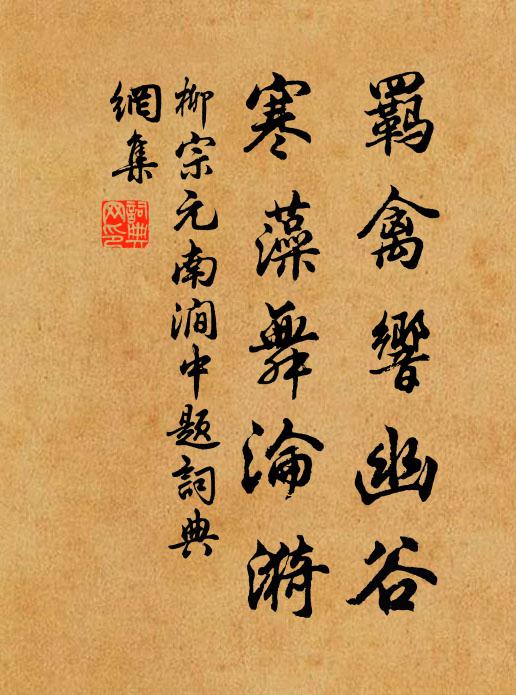 羈禽響幽谷
寒藻舞淪漪
柳宗元南澗中題詞典
網集
詞典
网印